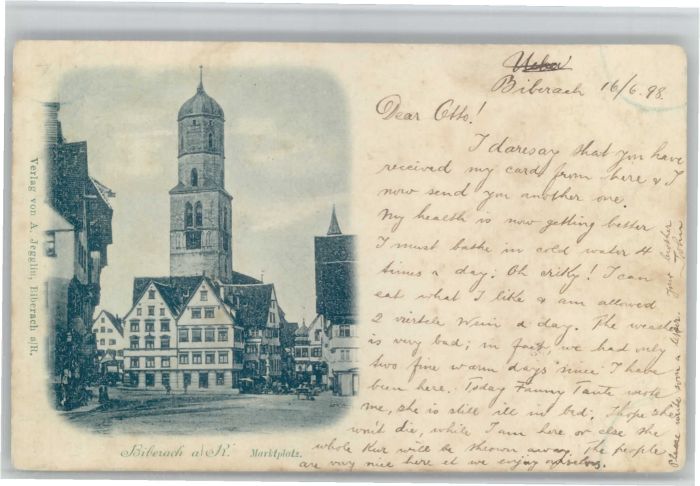 Biberach 16/6.98.
Dear Otto!
I daresay that you have
received my card from here & I
now send you another one.
My health is now getting better
I must bathe in cold water 4
times a day; Oh criky! I can
eat what I like & am allowed
2 viertele Wein a day. The weather
is very bad; in fact, we had only
two fine warm days since I have
been here. Today Fanny Tante wrote
me, she is still ill in bed. I hope she
won't die, while I am here or else the
whole Kur will be thrown away. The people
are very nice here et we enjoy ourselves.
Please write soon a letter.
your brother
John
Verlag von A. Jegglin, Biberach a/R.
Biberach a/R. Marktplatz.